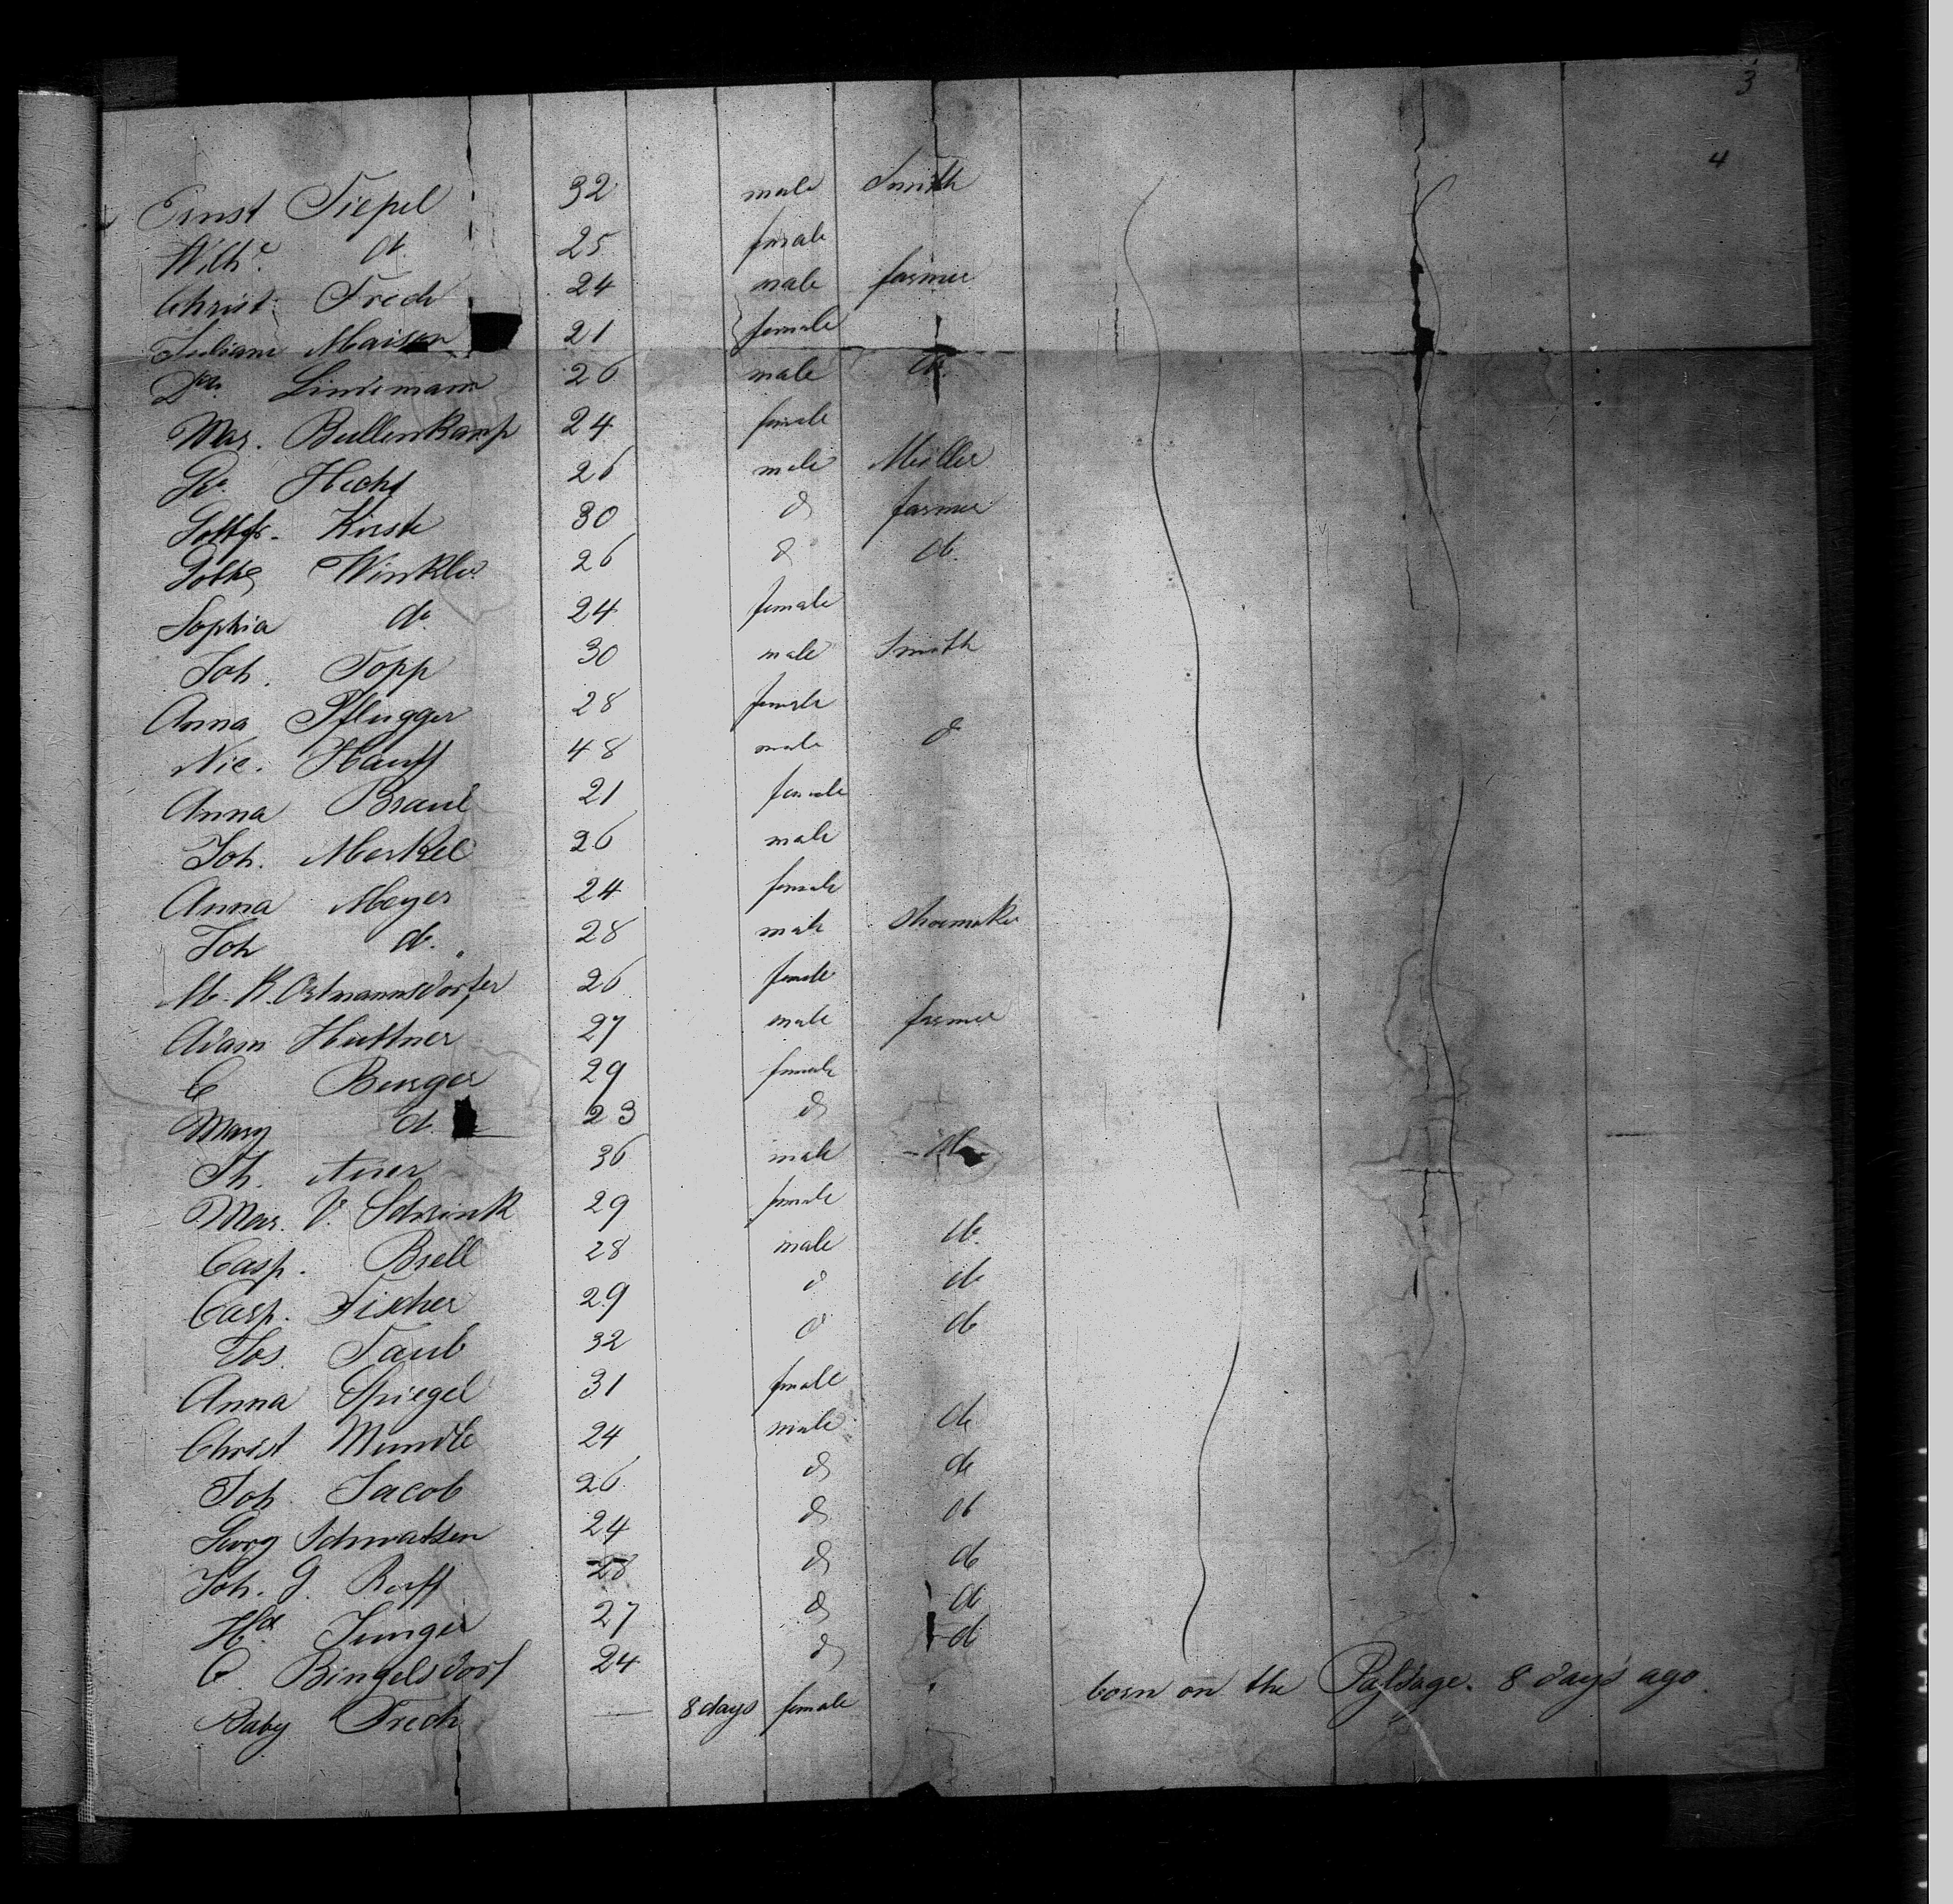 3
4
Ernst Tiepel 32 male Smith
Wilhe. do. 25 female
Christ. Frech 24 male farmer
Juliane Maisen 21 female
Lindemann 26 male do.
Mar. Bullenkamp 24 female
Hecht 26 male Müller
Gottfr. Kirste 30 do farmer
Gottl Winkler 26 do do.
Sophia do. 24 female
Joh. Topp 30 male Smith
Anna Pflugger 28 female
Nic. Hauff 48 male do
Anna Braul 21 female
Joh. Merkel 26 male
Anna Meyer 24 female
Joh do. 28 male Shoemaker
M. K. Ortmannsdorfer 26 female
Adam Huttner 27 male farmer
C Burger 29 female
Mary do. 23 do
Th. Auer 36 male do
Mar. V. Schrink 29 female
Casp. Brell 28 male do.
Casp. Fischer 29 do do
Jos. Taub 32 do do
Anna Spiegel 31 female
Christ Mundle 24 male do
Joh. Jacob 26 do do
Georg Schwatzen 24 do do
Joh. G. Ruff 28 do do
Hch Junger 27 do do
C. Bingelsdorf 24 do do
Baby Frech — 8 days female born on the Passage. 8 days ago.